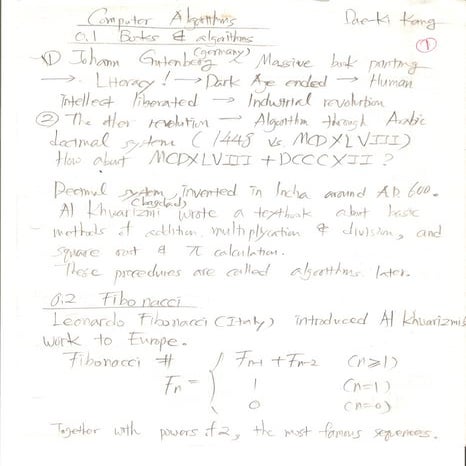 Computer Algorithms Dae-Ki Kang
0.1 Books & algorithms ①
① Johann Gutenberg (germany) Massive book printing
→ Literacy! → Dark Age ended → Human
intellect liberated → Industrial revolution
② The other revolution → Algorithm through Arabic
decimal system (1448 vs. MCDXLVIII)
How about MCDXLVIII + DCCCXII ?
Decimal system invented in India around AD. 600.
Al Khwarizmi (Bagdad) wrote a textbook about basic
methods of addition, multiplycation & division, and
square root & π calculation.
These procedures are called algorithms later.
0.2 Fibonacci
Leonardo Fibonacci (Italy) introduced Al Khwarizmi's
work to Europe.
Fibonacci # Fn = { Fn-1 + Fn-2 (n≥1)
1 (n=1)
0 (n=0)
Together with powers of 2, the most famous sequences.